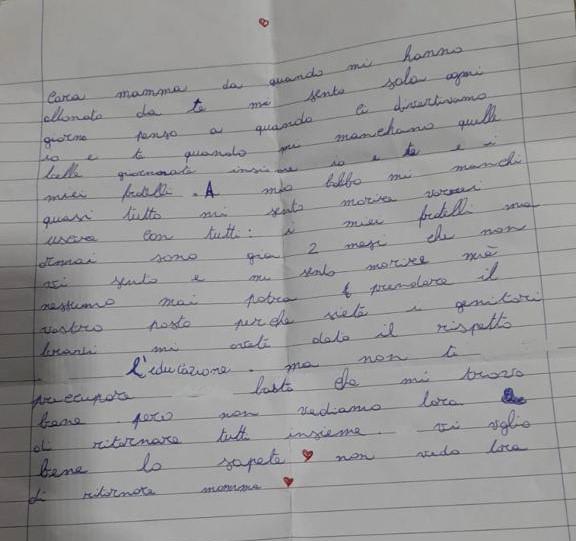 Cara mamma da quando mi hanno
allonato da te mi sento sola ogni
giorno penso a quando ci divertivamo
io e te quando mi manchano quelle
belle giornate insieme io e te e i
miei fratelli. A mio babbo mi manchi
quasi tutto mi sento morire vorrei
uscire con tutti: i miei fratelli ma
ormai sono gia 2 mesi che non
vi sento e mi sento morire
nessuno mai potra prendere il
vostro posto perche siete i genitori
bravi mi avete dato il rispetto
l'educazione. ma non te
preoccupare basta che mi trovo
bene pero non vediamo lora
di ritornare tutti insieme. vi voglio
bene lo sapete non vedo lora
di ritornare mamma